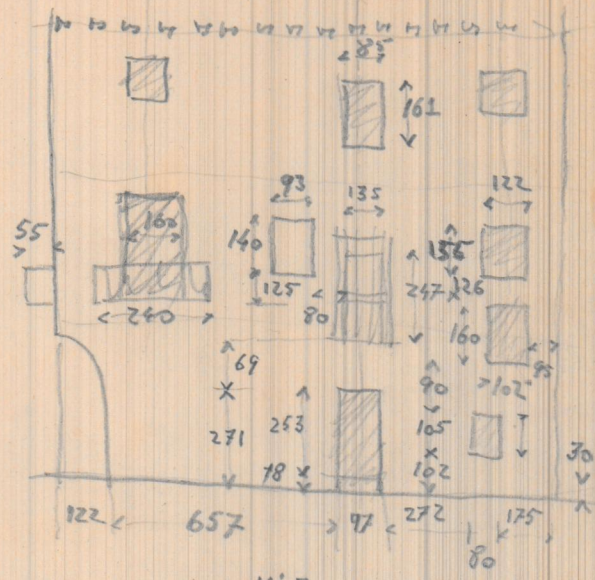 85
161
93 135 122
160
55
140 156
125 247 126
80
240 160
69 95
90 102
271 253 105
18 102
30
122 657 97 272 175
80